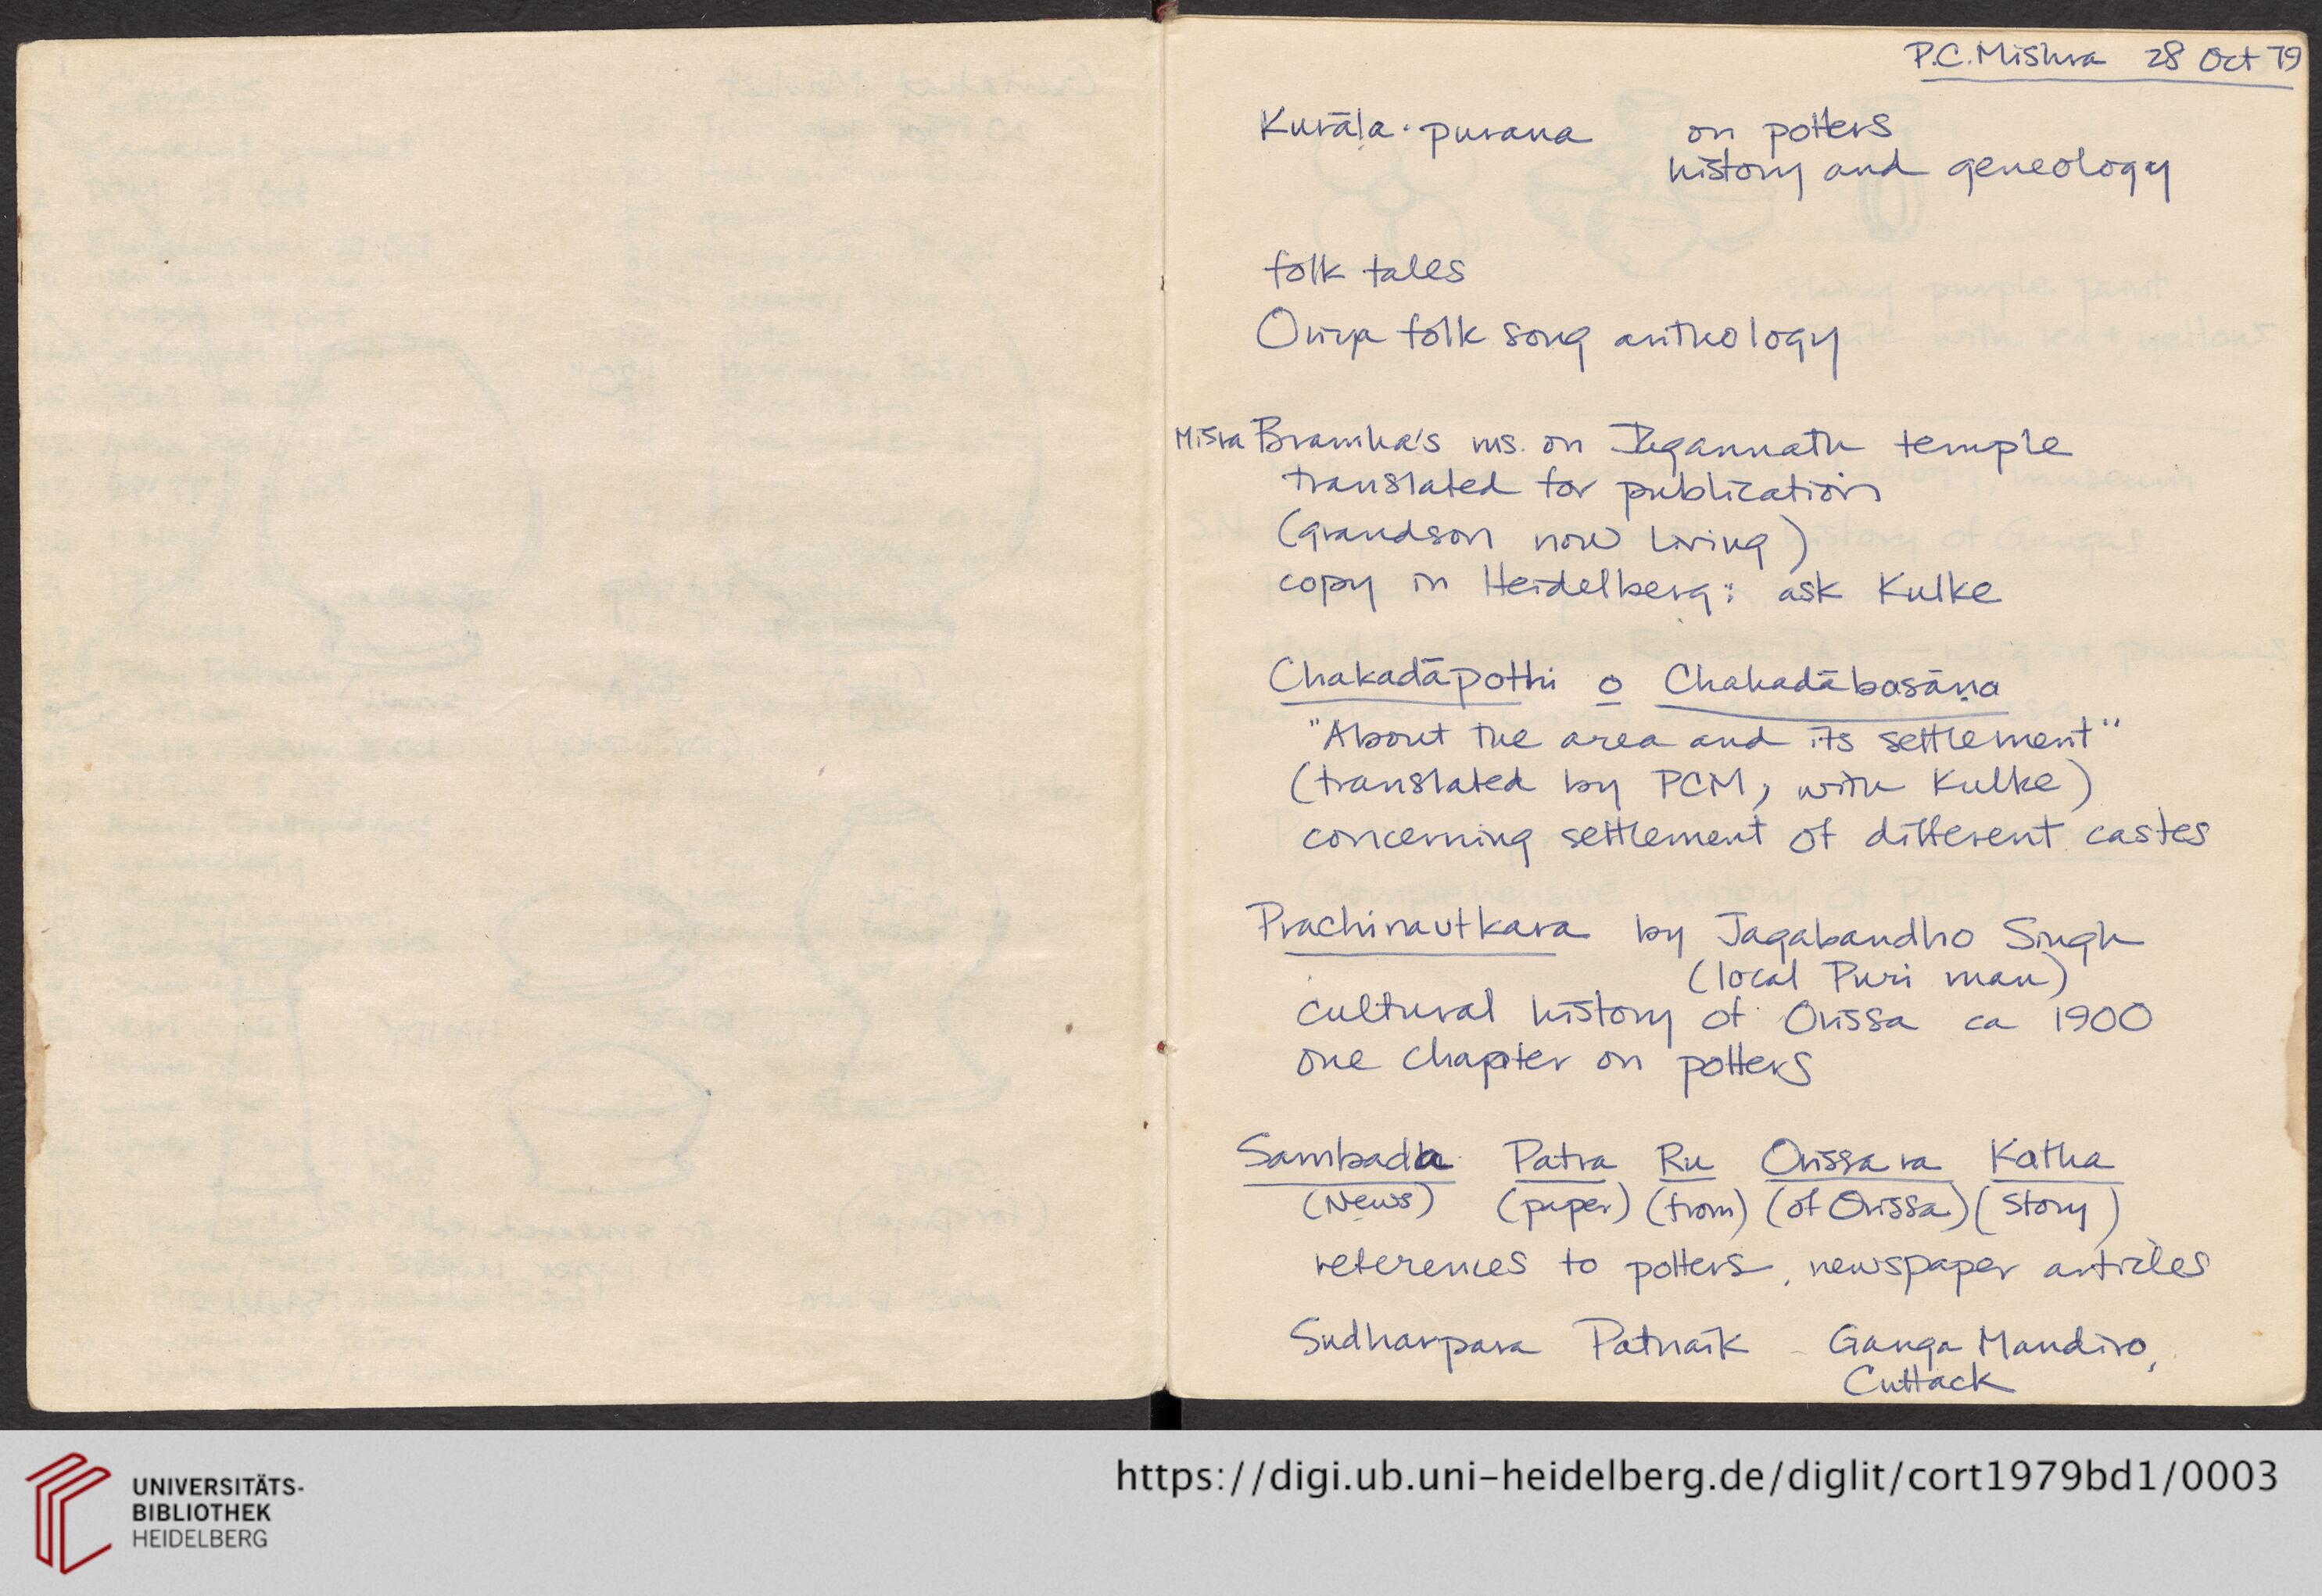 P.C. Mishra 28 Oct 79
Kurāḷa-purana on potters
history and geneology
folk tales
Oriya folk song anthology
Misra Bramha's ms. on Jagannath temple
translated for publication
(grandson now living)
copy in Heidelberg: ask Kulke
Chakadāpothi o Chakadābasāṇa
"About the area and its settlement"
(translated by PCM, with Kulke)
concerning settlement of different castes
Prachinautkara by Jagabandho Singh
(local Puri man)
cultural history of Orissa ca 1900
one chapter on potters
Sambada Patra Ru Orissa ra Katha
(News) (paper) (from) (of Orissa) (story)
references to potters, newspaper articles
Sudharpara Patnaik Ganga Mandiro,
Cuttack
UNIVERSITÄTS-
BIBLIOTHEK
HEIDELBERG
https://digi.ub.uni-heidelberg.de/diglit/cort1979bd1/0003